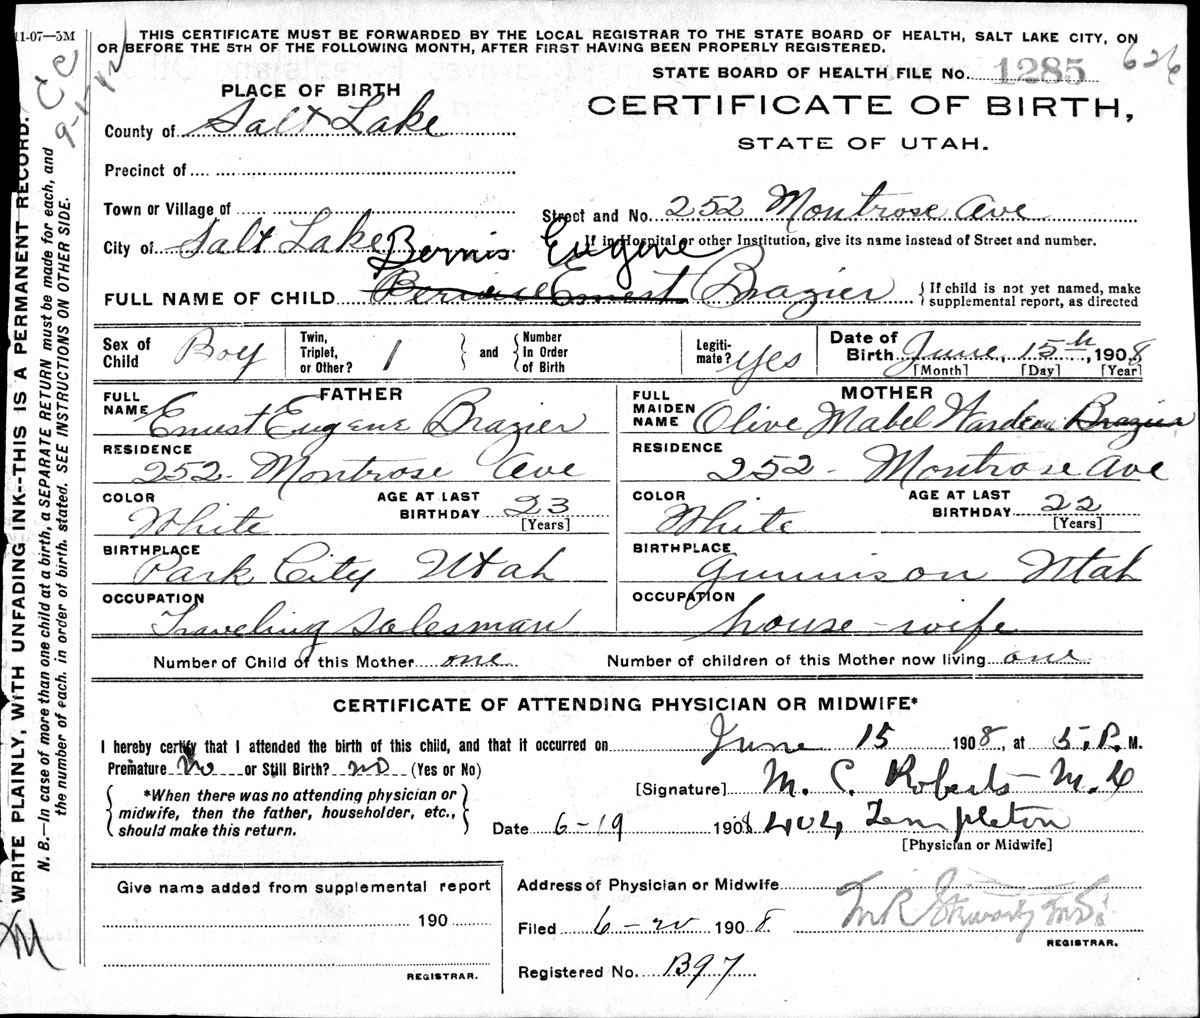 11-07—5M
THIS CERTIFICATE MUST BE FORWARDED BY THE LOCAL REGISTRAR TO THE STATE BOARD OF HEALTH, SALT LAKE CITY, ON
OR BEFORE THE 5TH OF THE FOLLOWING MONTH, AFTER FIRST HAVING BEEN PROPERLY REGISTERED.
626
STATE BOARD OF HEALTH FILE No. 1285
PLACE OF BIRTH
CERTIFICATE OF BIRTH,
STATE OF UTAH.
County of Salt Lake
Precinct of
Town or Village of
Street and No. 252 Montrose Ave
City of Salt Lake
If in Hospital or other Institution, give its name instead of Street and number.
Bernis Eugene
FULL NAME OF CHILD Ernest Brazier
{ If child is not yet named, make supplemental report, as directed
Sex of Child Boy
Twin, Triplet, or Other? 1 } and { Number In Order of Birth
Legitimate? yes
Date of Birth June, 15th, 1908
[Month] [Day] [Year]
FATHER
FULL NAME Ernest Eugene Brazier
RESIDENCE 252 - Montrose Ave
COLOR White
AGE AT LAST BIRTHDAY 23
[Years]
BIRTHPLACE Park City Utah
OCCUPATION Traveling Salesman
MOTHER
FULL MAIDEN NAME Olive Mabel Warden Brazier
RESIDENCE 252 - Montrose Ave
COLOR White
AGE AT LAST BIRTHDAY 22
[Years]
BIRTHPLACE Gunnison Utah
OCCUPATION house-wife
Number of Child of this Mother one
Number of children of this Mother now living one
CERTIFICATE OF ATTENDING PHYSICIAN OR MIDWIFE*
I hereby certify that I attended the birth of this child, and that it occurred on June 15 1908, at 5.P. M.
Premature no or Still Birth? no (Yes or No)
{ *When there was no attending physician or midwife, then the father, householder, etc., should make this return. }
[Signature] M. C. Roberts
Date 6-19 1908 404 Templeton
[Physician or Midwife]
Give name added from supplemental report
190
REGISTRAR.
Address of Physician or Midwife
Filed 6-20 1908
REGISTRAR.
Registered No. 1397
WRITE PLAINLY, WITH UNFADING INK--THIS IS A PERMANENT RECORD.
N. B.—In case of more than one child at a birth, a SEPARATE RETURN must be made for each, and
the number of each, in order of birth, stated. SEE INSTRUCTIONS ON OTHER SIDE.